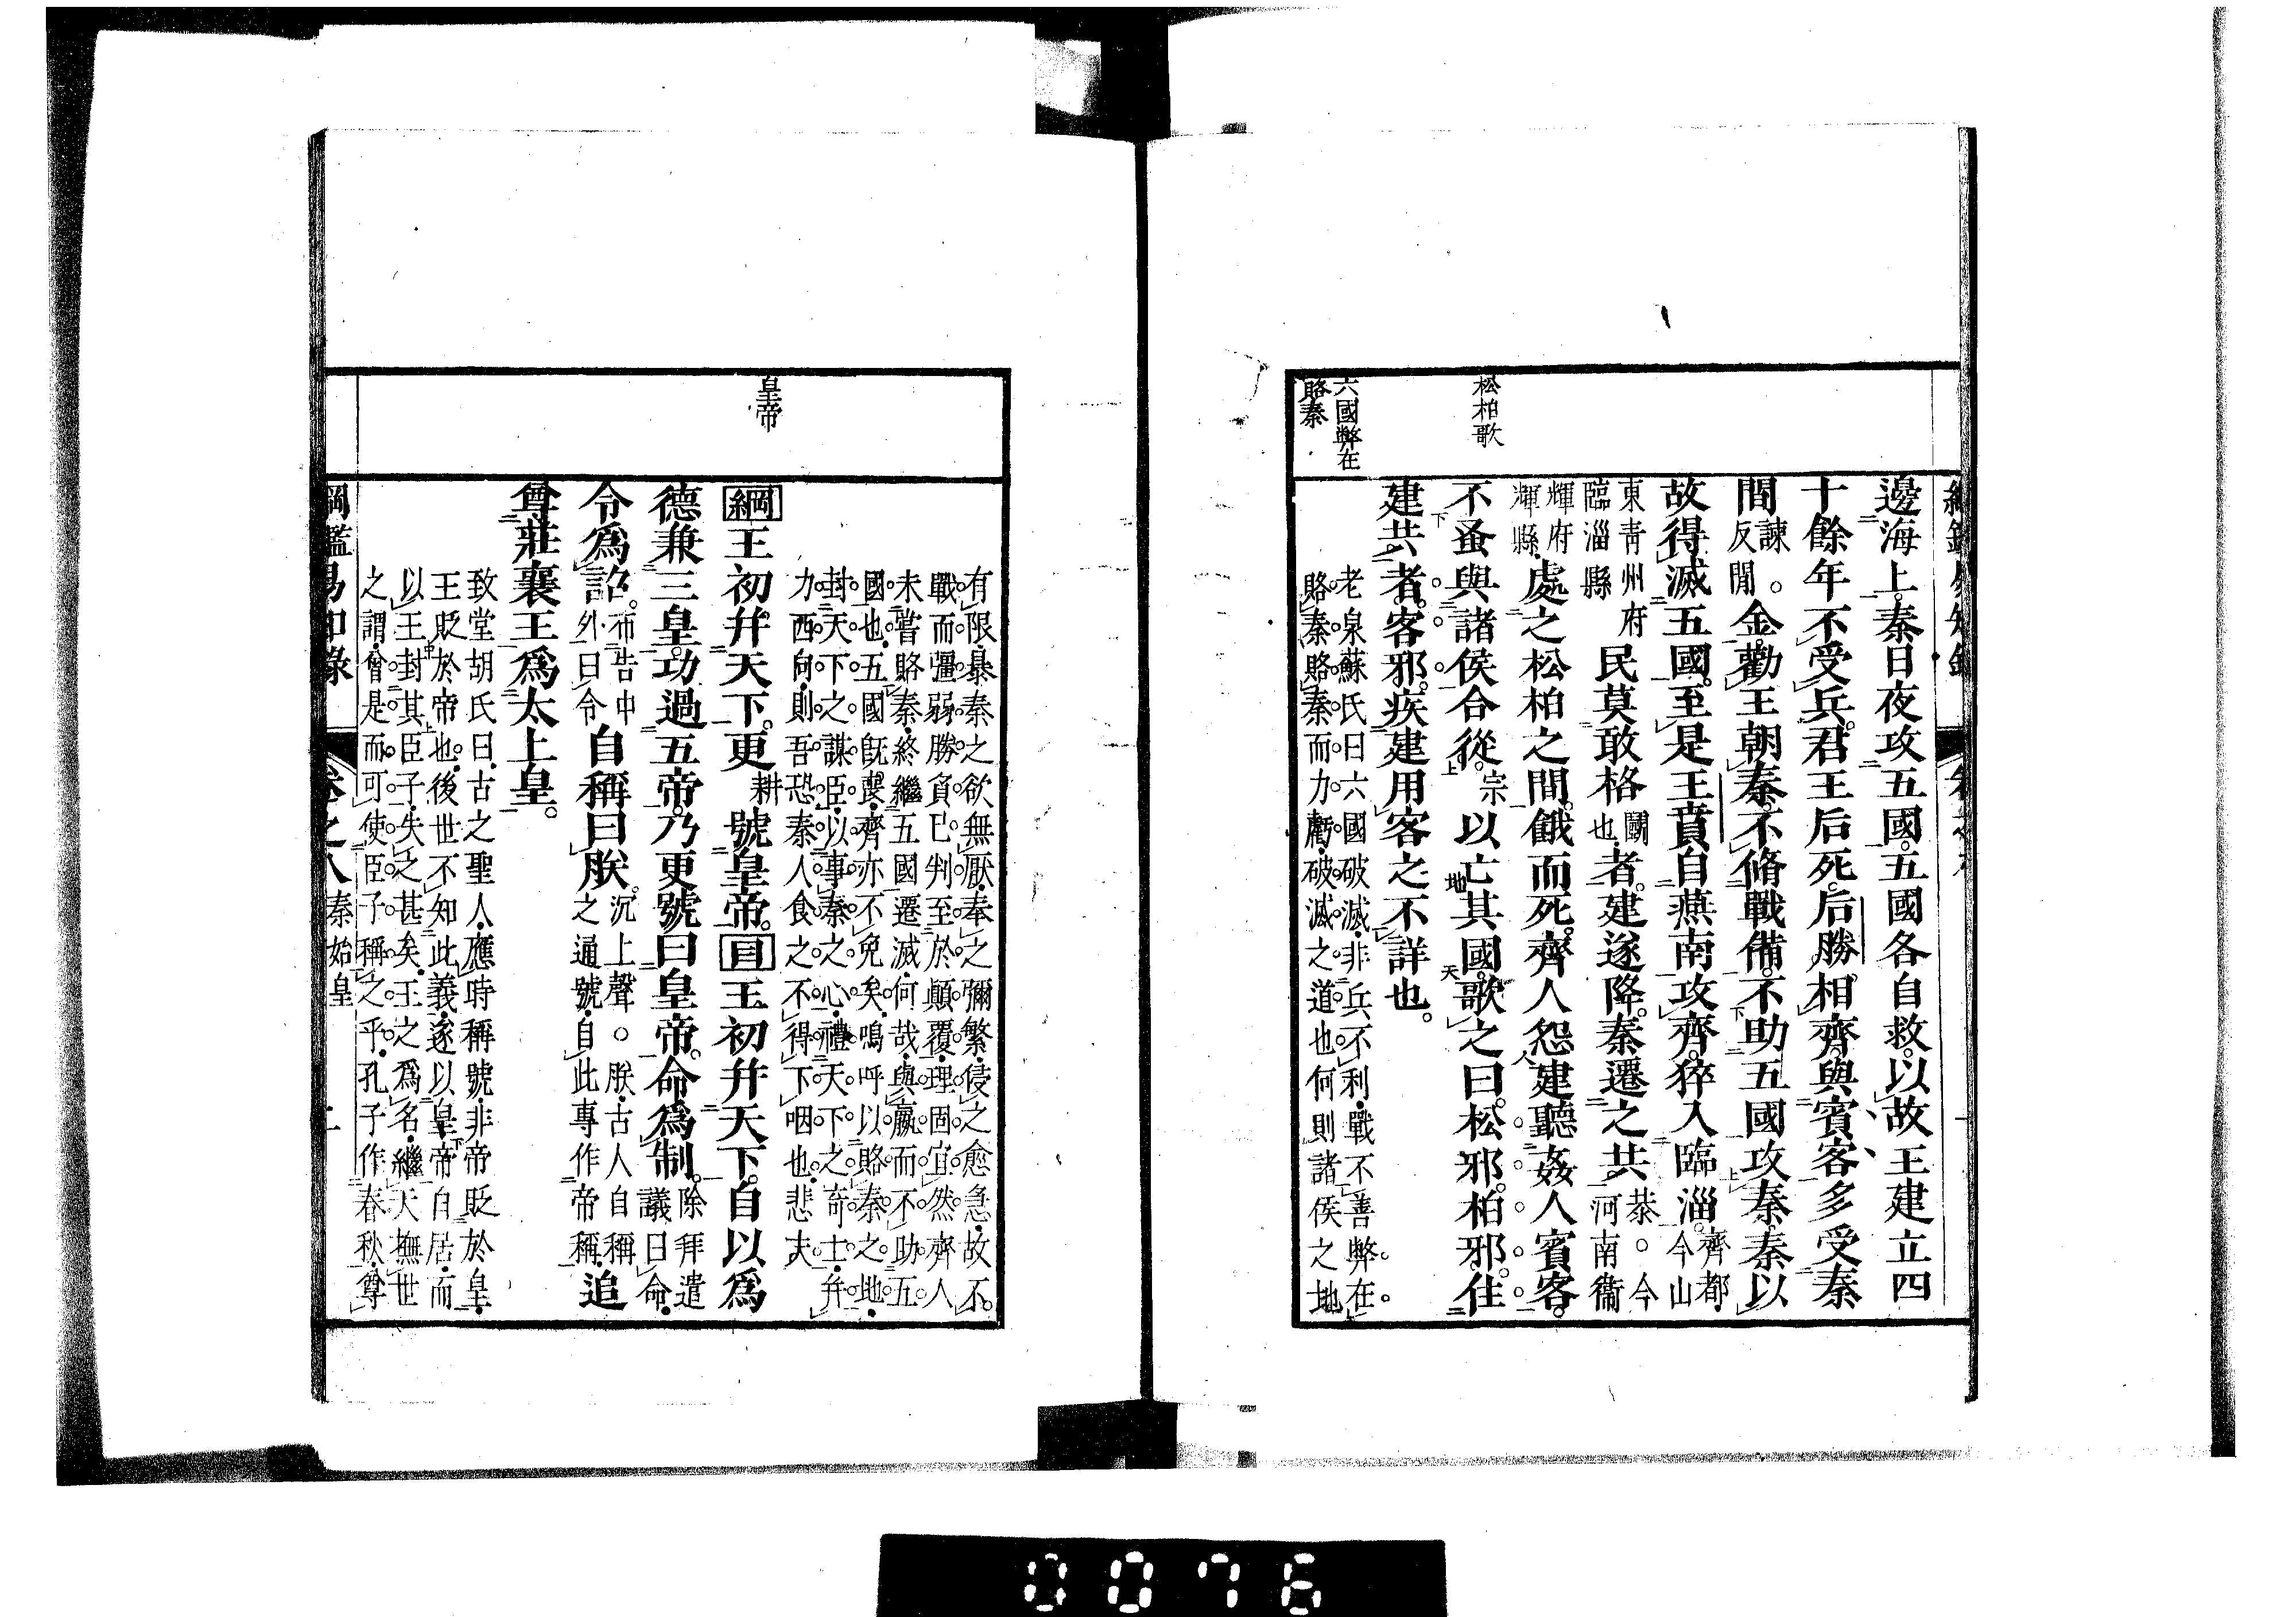 松柏歌
六國弊在
賂秦
邊海上。秦日夜攻五國。五國各自救。以故王建立四
十餘年不受兵。君王后死。后勝相齊。與賓客多受秦
間諫。反間金。勸王朝秦。不脩戰備。不助五國攻秦。秦以
故得滅五國。至是王賁自燕南攻齊。猝入臨淄。齊都。今山
東青州府臨淄縣民莫敢格鬭也。者。建遂降。秦遷之共恭。今河南衞
輝府輝縣。處之松柏之間。餓而死。齊人怨建聽姦人賓客。
不蚤與諸侯合從宗以亡其國。歌之曰。松邪。柏邪。住
建共者。客邪。疾建用客之不詳也。
老泉蘇氏曰六國破滅。非兵不利。戰不善。弊在。
賂秦。賂秦而力虧。破滅之道也。何則諸侯之地
皇帝
有限。暴秦之欲無厭。奉之彌繁。侵之愈急。故不。
戰而彊弱勝負已判。至於顛覆。理固宜然。齊人
未嘗賂秦。終繼五國遷滅。何哉。與嬴而不助五
國也。五國旣喪。齊亦不免矣。嗚呼以賂秦之地。
封天下之謀臣。以事秦之心。禮天下之奇士。幷
力西向。則吾恐秦人食之不得下咽也。悲夫
綱王初幷天下。更耕號皇帝。目王初幷天下。自以爲
德兼三皇。功過五帝。乃更號曰皇帝。命爲制。除拜遣議曰命。
令爲詔。布告中外曰令自稱曰朕。沉上聲。朕。古人自稱之通號。自此專作帝稱。追
尊莊襄王爲太上皇。
致堂胡氏曰。古之聖人。應時稱號。非帝貶於皇。
王貶於帝也。後世不知此義。遂以皇帝自居。而
以王封其臣子。失之甚矣。王之爲名。繼天撫世
之謂。曾是而可使臣子稱之乎。孔子作春秋。尊
綱鑑易知錄 卷之八 秦始皇
0076